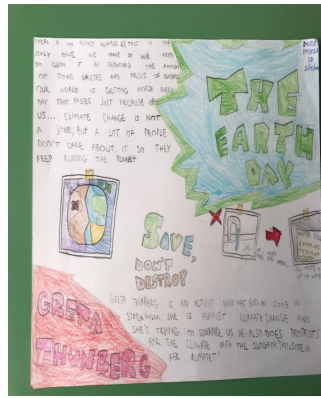 THERE IS NO PLANET NUMBER B! THIS IS THE
ONLY ONE WE HAVE SO WE NEED
TO CLEAN IT BY REDUCING THE AMOUNT
OF TOXIC WASTES AND PIECES OF RUBBISH
OUR WORLD IS GETTING WORSE EVERY
DAY THAT PASSES JUST BECAUSE OF
US... CLIMATE CHANGE IS NOT
A JOKE, BUT A LOT OF PEOPLE
DON'T CARE ABOUT IT SO THEY
KEEP RUINING THE PLANET
THE
EARTH
DAY
SAVE,
DON'T
DESTROY
GRETA
THUNBERG
GRETA THUNBERG IS AN ACTIVIST WHO WAS BORN IN 2003 IN
STOCKHOLM, SHE IS AGAINST CLIMATE CHANGE AND
SHE'S TRYING TO CONVINCE US. HE ALSO DOES PROTESTS
FOR THE CLIMATE WITH THE SLOGAN